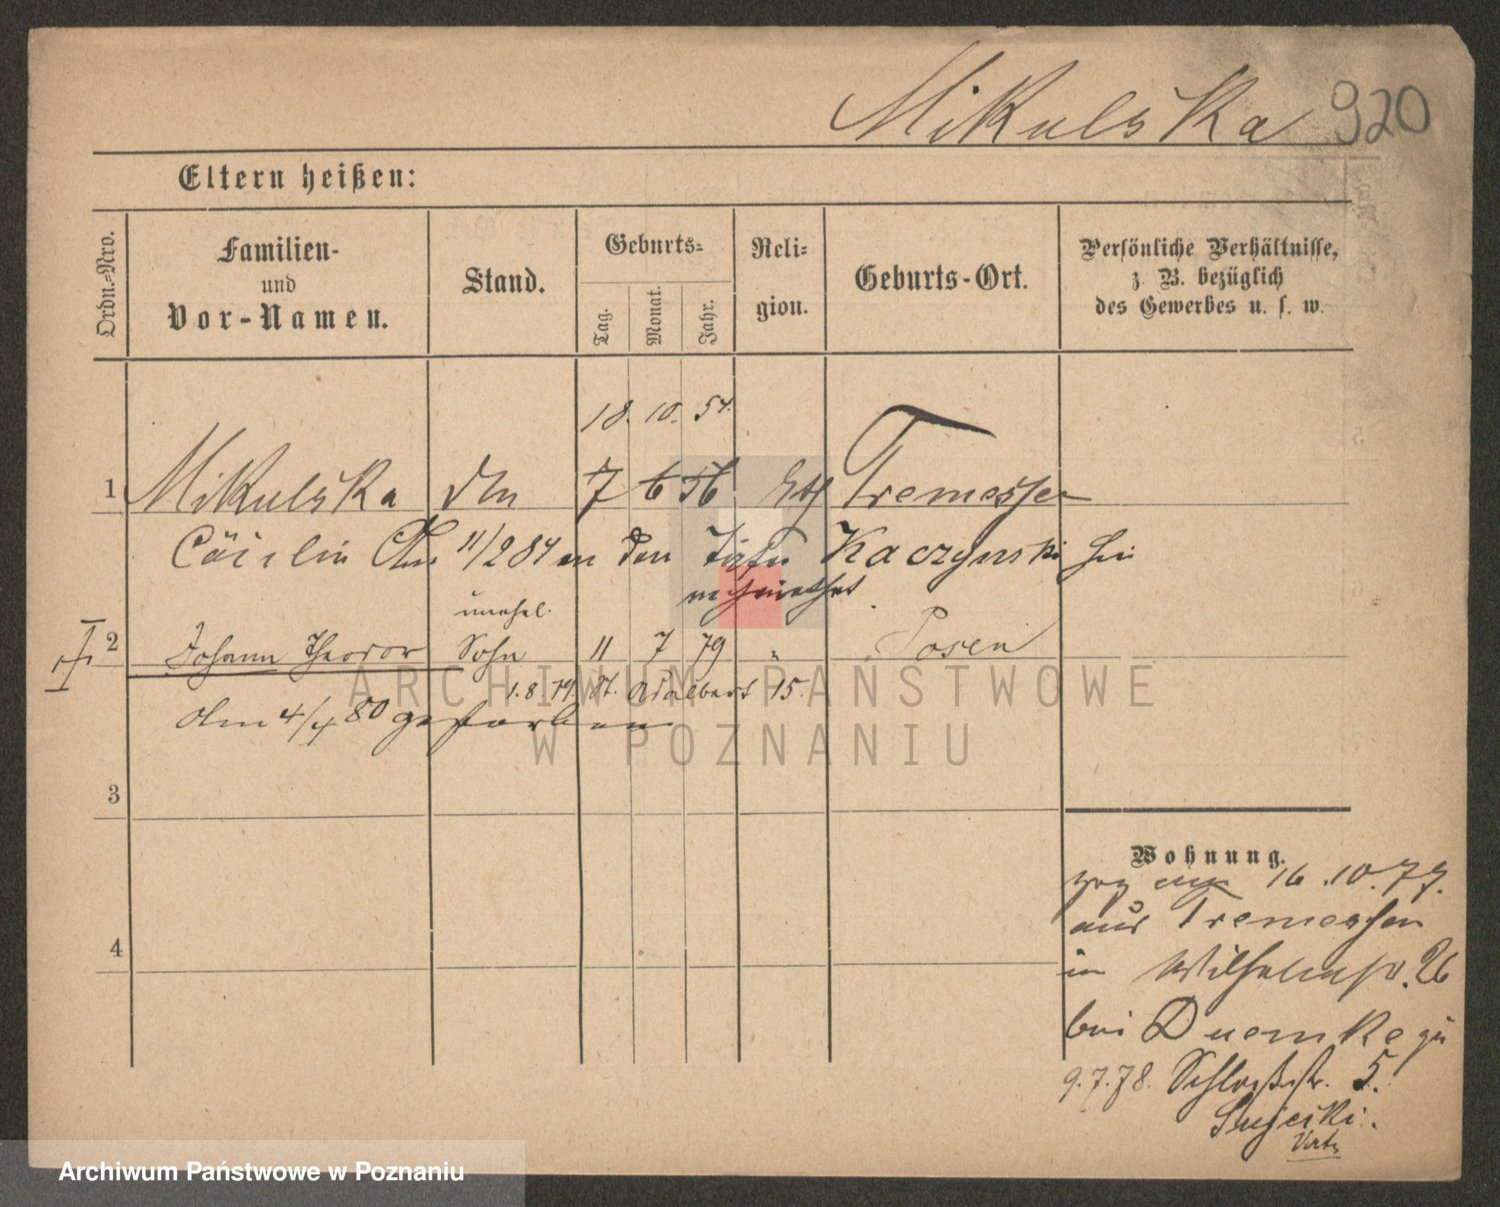 Mikulska 920
Eltern heißen:
Ordn.-Nro.
Familien- und Vor-Namen.
Stand.
Geburts-
Tag.
Monat.
Jahr.
Religion.
Geburts-Ort.
Persönliche Verhältnisse,
z. B. bezüglich
des Gewerbes u. s. w.
18. 10. 54.
1 Mikulska 7 6 56 Tremessen
Cäcilie 11/2 84 an den Kaczynski hier
verheirathet.
unehel.
2 Johann Theodor Sohn 11 7 79 " Posen
1.8.79. St. Adalbert 15.
Am 4/4 80 gestorben
3
4
Wohnung.
zog am 16.10.77.
aus Tremessen
in Wilhelmstr. 26
bei Duemke zu
9.7.78. Schloßstr. 5.
Verte
ARCHIWUM PAŃSTWOWE
W POZNANIU
Archiwum Państwowe w Poznaniu